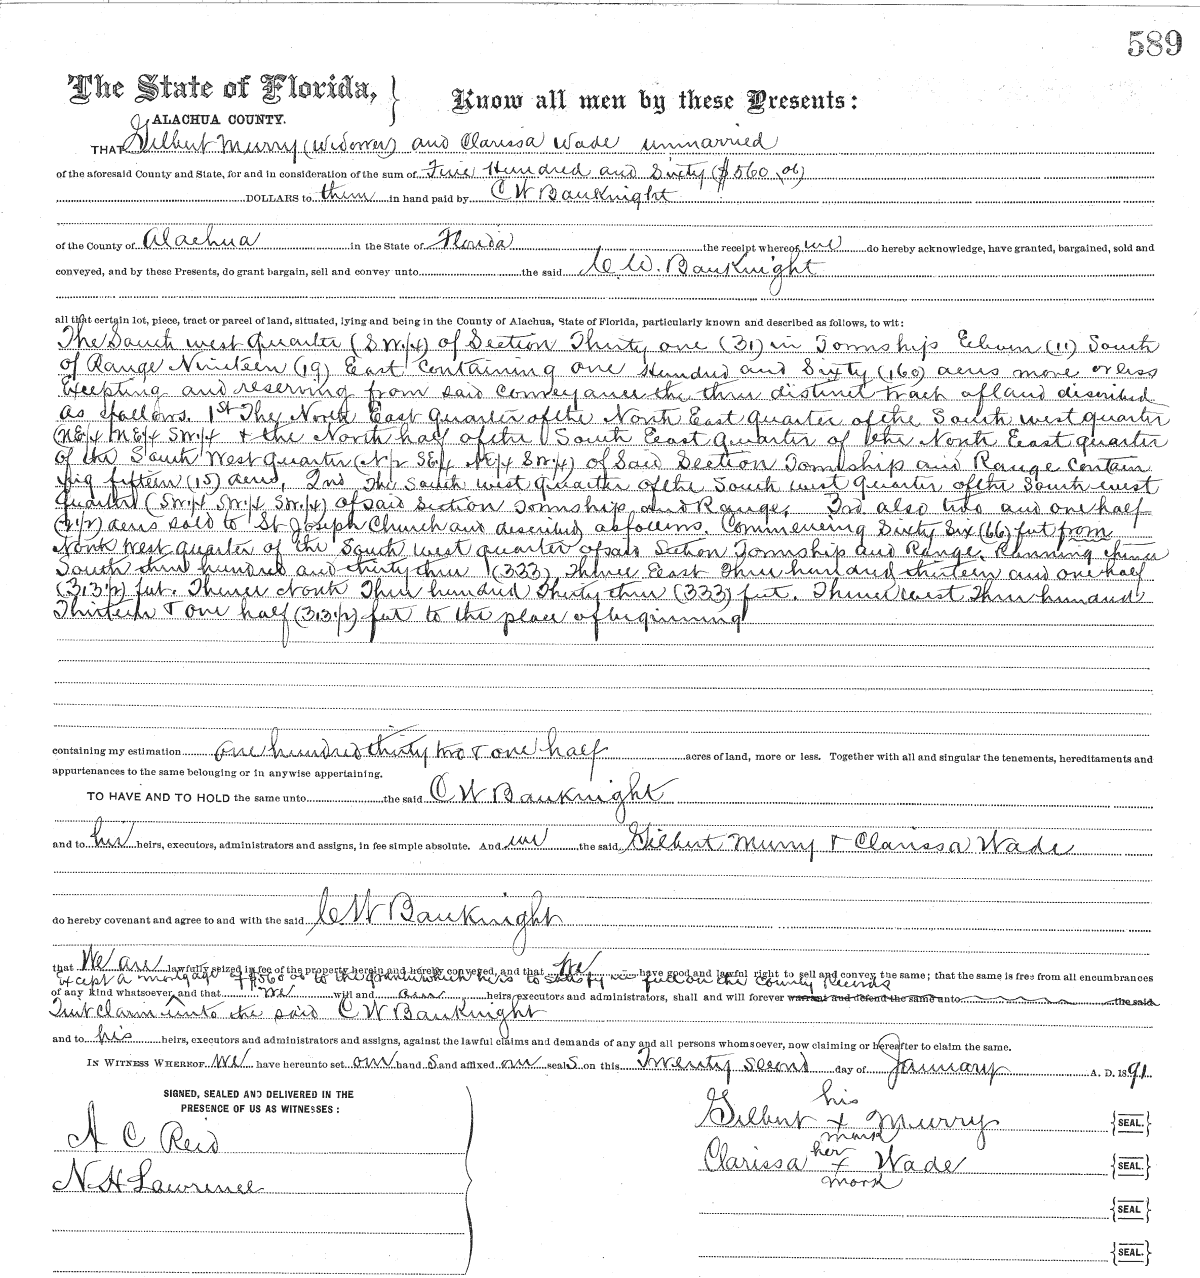 589
The State of Florida, } Know all men by these Presents:
ALACHUA COUNTY.
THAT Gilbert Murry (Widower) and Clarissa Wade unmarried
of the aforesaid County and State, for and in consideration of the sum of Five Hundred and Sixty ($560.00)
DOLLARS to them in hand paid by C W Bauknight
of the County of Alachua in the State of Florida the receipt whereof we do hereby acknowledge, have granted, bargained, sold and
conveyed, and by these Presents, do grant bargain, sell and convey unto the said C. W. Bauknight
all that certain lot, piece, tract or parcel of land, situated, lying and being in the County of Alachua, State of Florida, particularly known and described as follows, to wit:
The South west Quarter (SW 1/4) of Section Thirty one (31) in Township Eleven (11) South
of Range Nineteen (19) East containing one Hundred and Sixty (160) acres more or less
Excepting and reserving from said conveyance the three distinct tracts of land discribed
as follows. 1st The North East Quarter of the North East Quarter of the South west quarter
(NE1/4 NE1/4 SW1/4 & the North half of the South East Quarter of the North East quarter
of the South West Quarter (N1/2 SE1/4 NE1/4 SW1/4) of Said Section Township and Range Contain
ing fifteen (15) acres, 2nd The South west Quarter of the South west Quarter of the South west
Quarter (SW1/4 SW1/4 SW1/4) of said Section Township and Range. 3rd also two and one half
(2 1/2) acres sold to St Joseph Church and described as follows. Commencing Sixty Six (66) feet from
North West quarter of the South west quarter of said Section Township and Range. Running thence
South three hundred and thirty three (333) Thence East Three hundred thirteen and one half
(313 1/2) feet. Thence North Three hundred Thirty three (333) feet. Thence west Three hundred
Thirteen & one half (313 1/2) feet to the place of beginning
containing my estimation one hundred thirty two & one half acres of land, more or less. Together with all and singular the tenements, hereditaments and
appurtenances to the same belonging or in anywise appertaining.
TO HAVE AND TO HOLD the same unto the said C W Bauknight
and to his heirs, executors, administrators and assigns, in fee simple absolute. And we the said Gilbert Murry & Clarissa Wade
do hereby covenant and agree to and with the said C W Bauknight
that We are lawfully seized in fee of the property herein and hereby conveyed, and that We have good and lawful right to sell and convey the same; that the same is free from all encumbrances
Except a mortgage of $560.00 to the grantee which he is to satisfy in full on the County Records
of any kind whatsoever, and that We will and our heirs, executors and administrators, shall and will forever warrant and defend the same unto the said
Quit Claim unto the said C W Bauknight
and to his heirs, executors and administrators and assigns, against the lawful claims and demands of any and all persons whomsoever, now claiming or hereafter to claim the same.
IN WITNESS WHEREOF We have hereunto set our hand s and affixed our seal s on this Twenty second day of January A. D. 1891.
SIGNED, SEALED AND DELIVERED IN THE
PRESENCE OF US AS WITNESSES:
his
Gilbert x Murry {SEAL.}
mark
A C Reid
her
Clarissa x Wade {SEAL.}
mark
N H Lawrence
{SEAL}
{SEAL.}